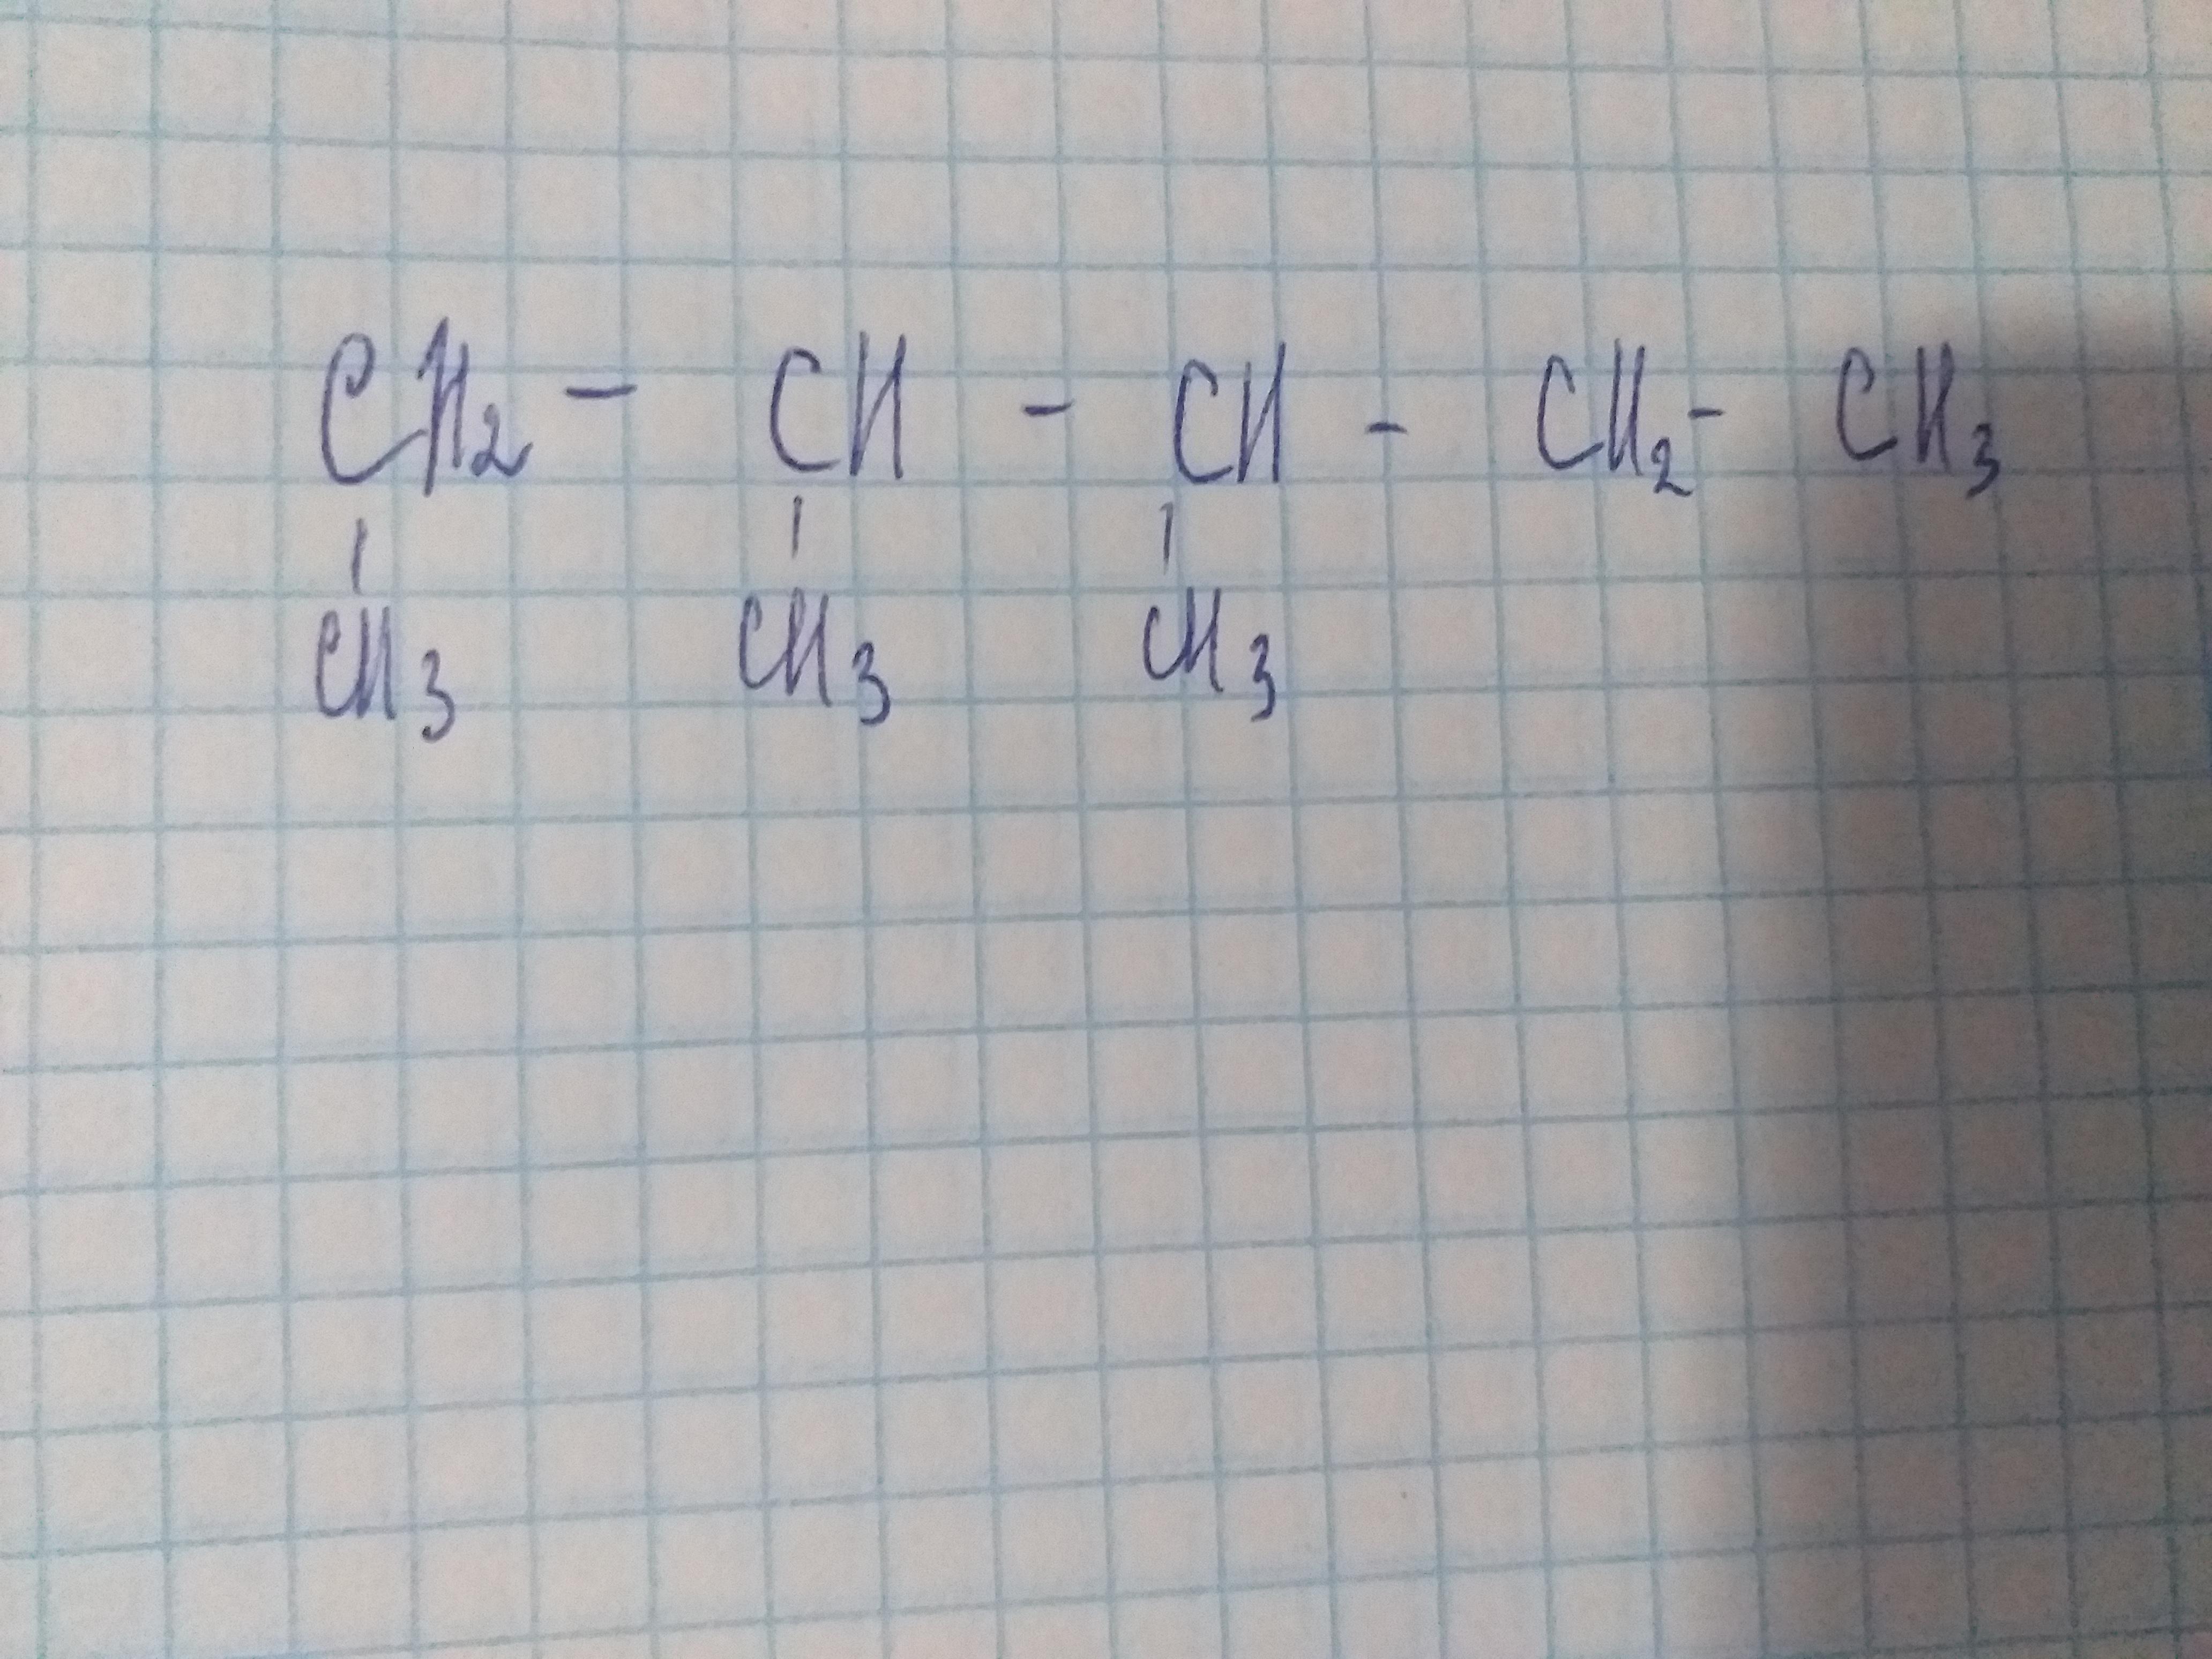 CH2 - CH - CH - CH2 - CH3
| | |
CH3 CH3 CH3